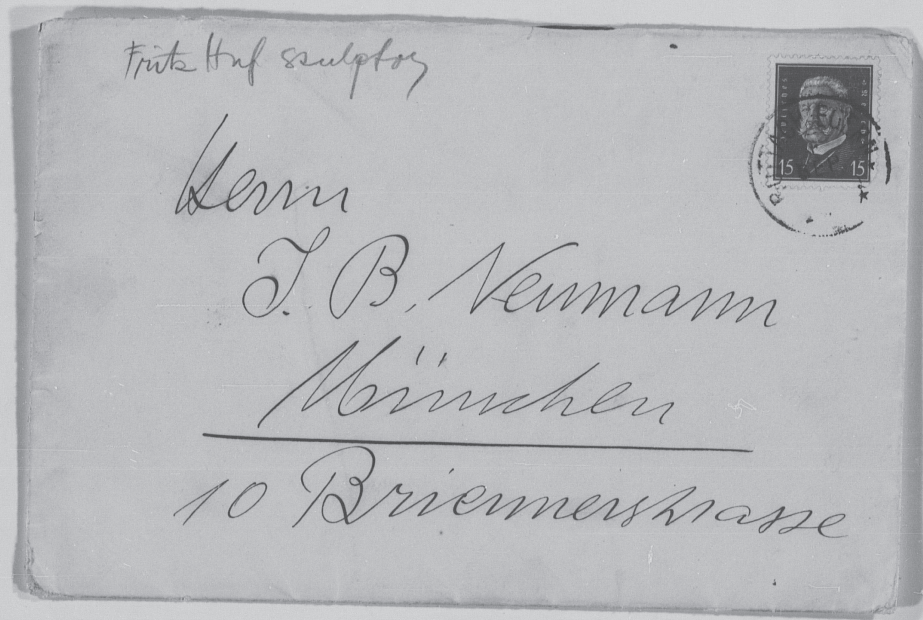 Fritz Huf sculptor
15 15
Herrn
J. B. Neumann
München
10 Briennerstrasse